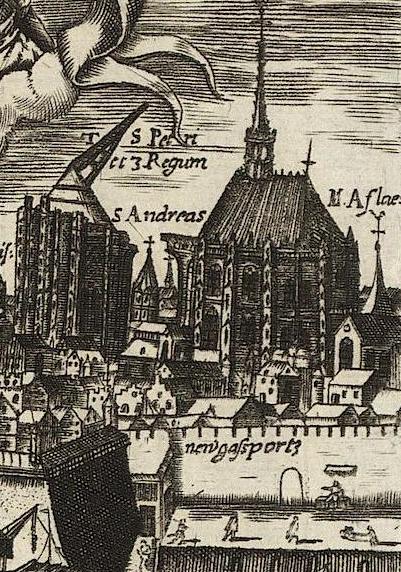 T. S Petri
et 3 Regum
S Andreas
M. Aflae
newgasportz